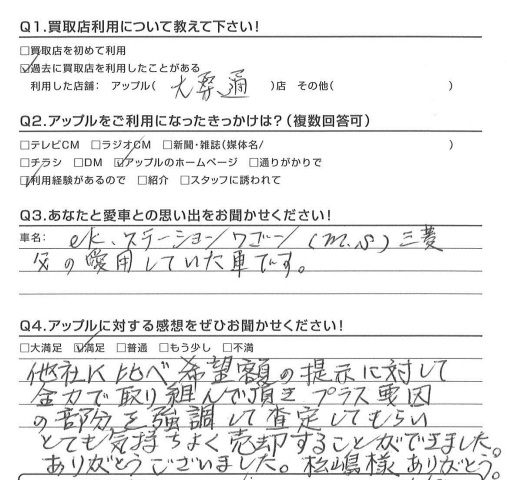 Q1.買取店利用について教えて下さい!
□買取店を初めて利用
☑過去に買取店を利用したことがある
利用した店舗: アップル( 大琴通 )店 その他( )
Q2.アップルをご利用になったきっかけは?(複数回答可)
□テレビCM □ラジオCM □新聞・雑誌(媒体名/ )
□チラシ □DM ☑アップルのホームページ □通りがかりで
☑利用経験があるので □紹介 □スタッフに誘われて
Q3.あなたと愛車との思い出をお聞かせください!
車名: ek.ステーションワゴン(m.s)三菱
父の愛用していた車です。
Q4.アップルに対する感想をぜひお聞かせください!
□大満足 ☑満足 □普通 □もう少し □不満
他社に比べ希望額の提示に対して
全力で取り組んで頂きプラス要因
の部分を強調して査定してもらい
とても気持ちよく売却することができました。
ありがとうございました。松嶋様ありがとう。